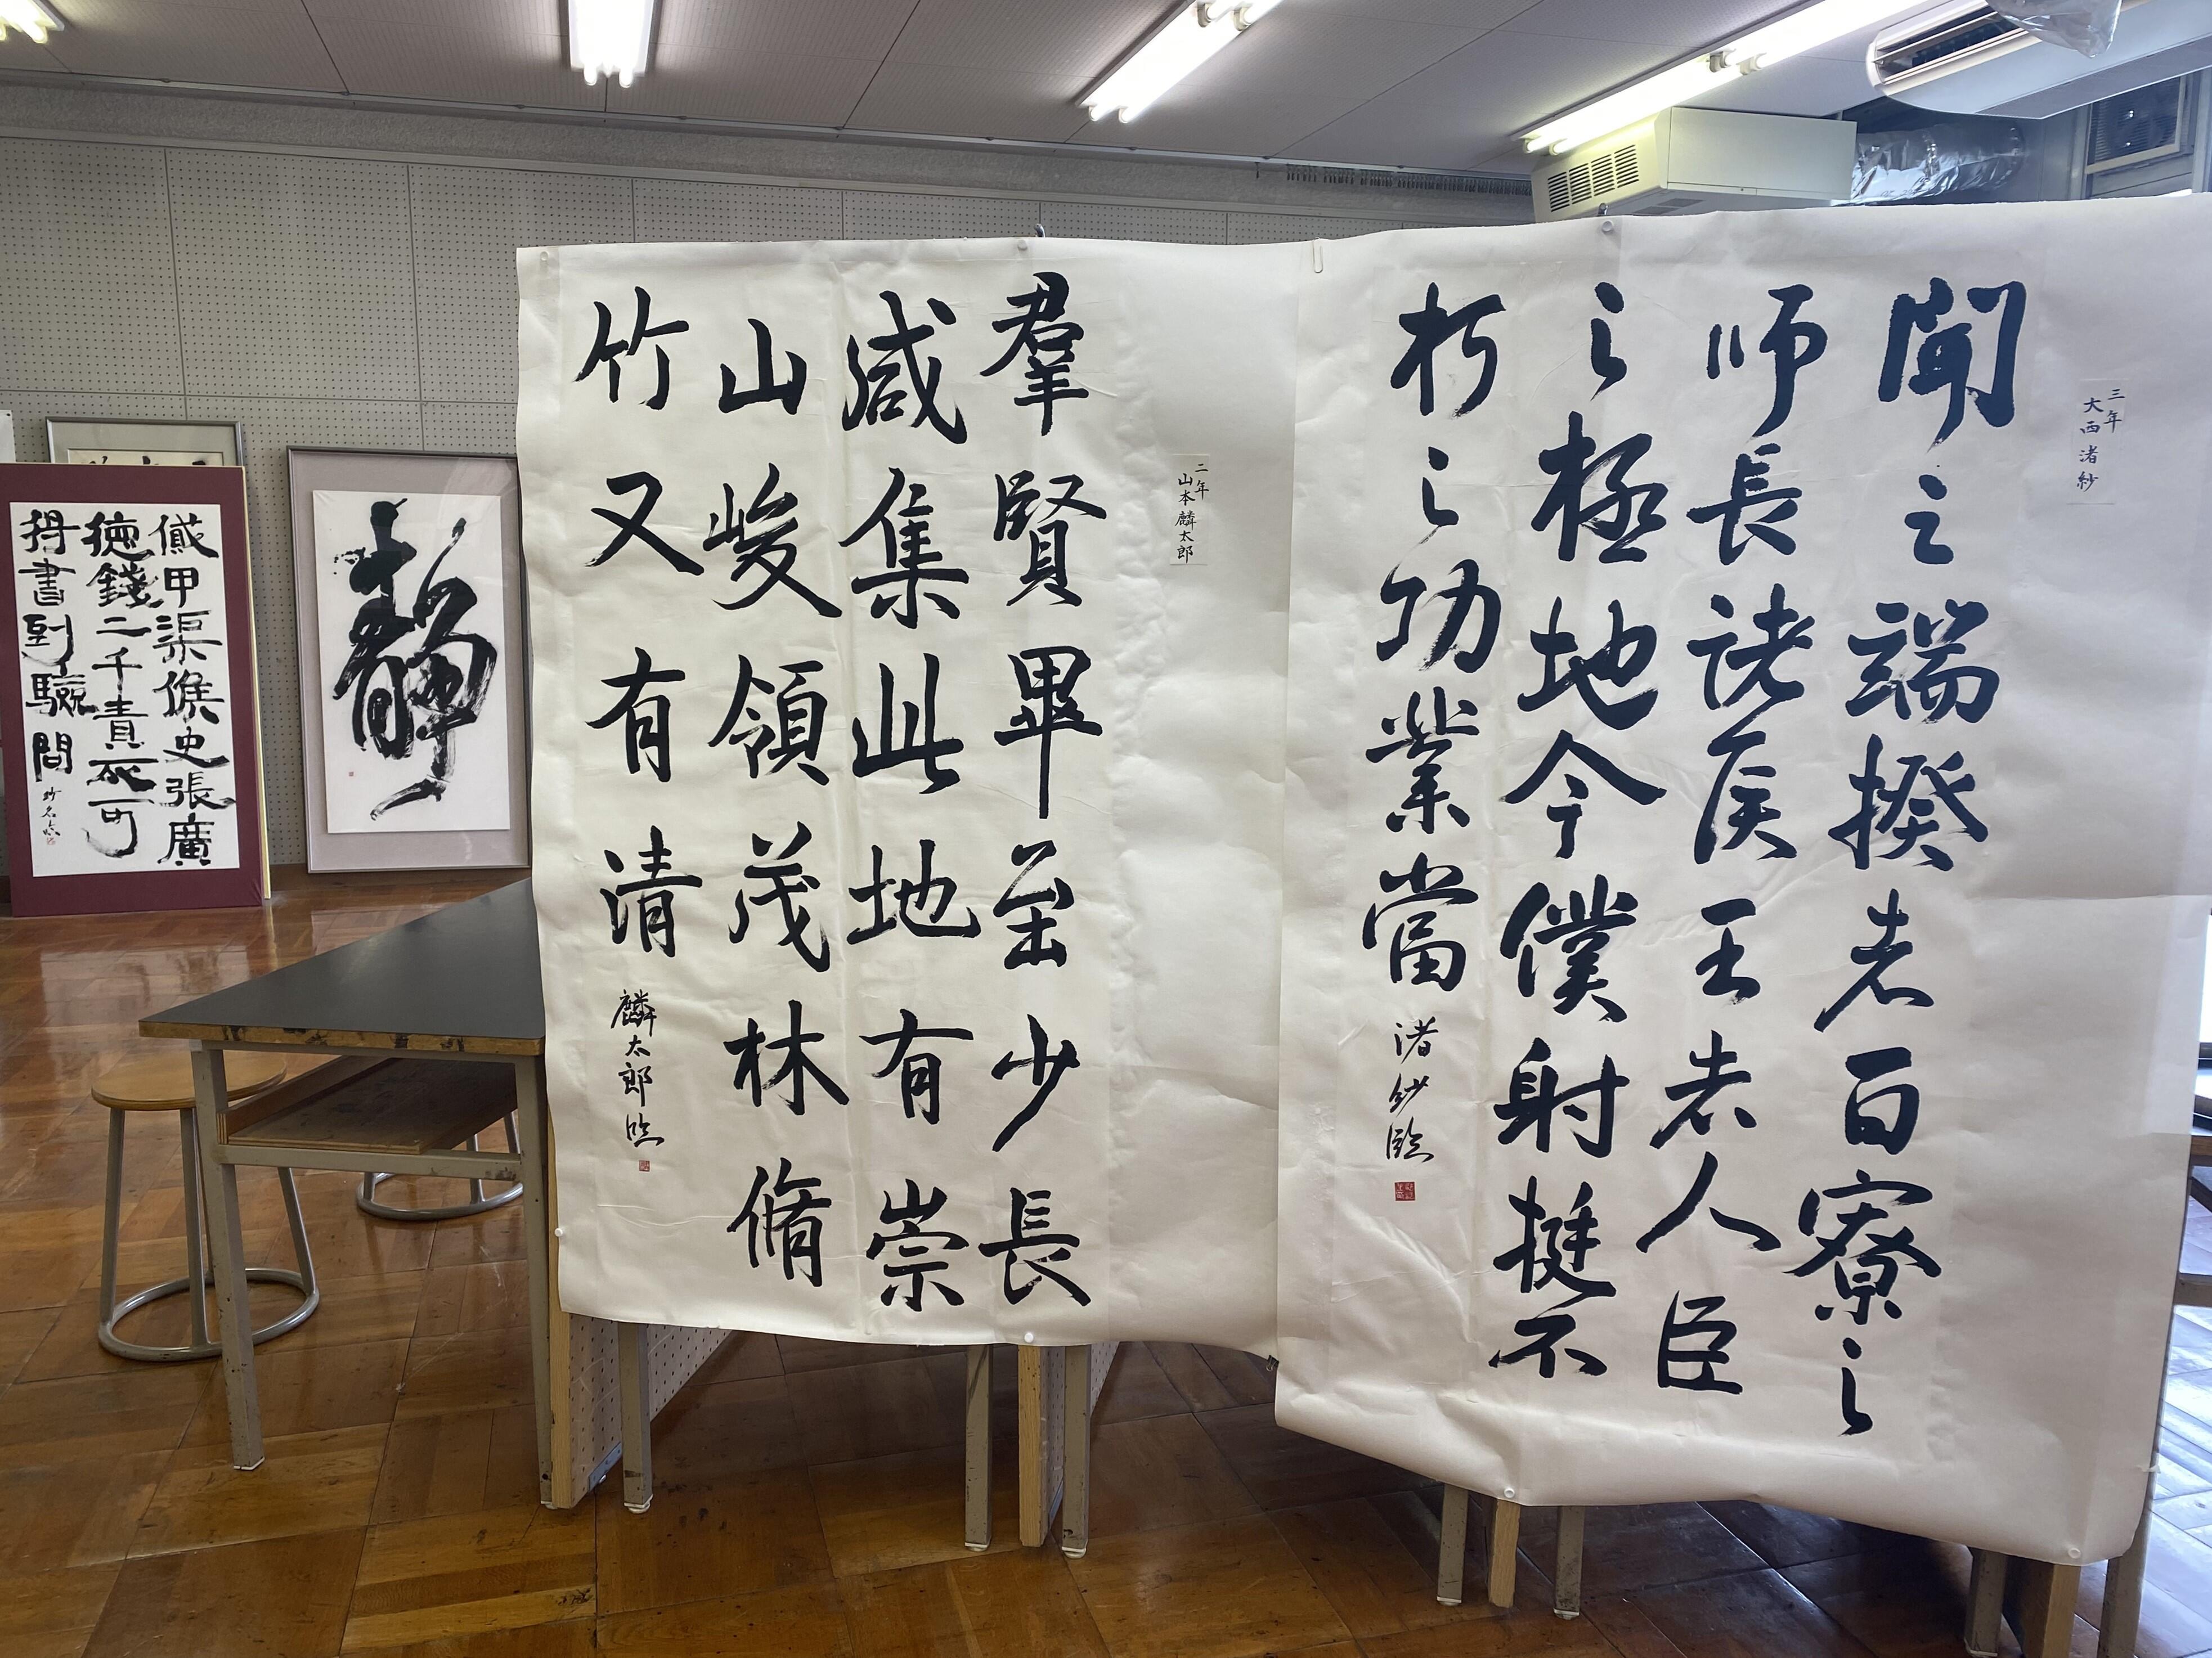 三年
大西渚紗
聞之端揆者百寮之
師長諸侯王者人臣
之極地今僕射挺不
朽之功業當 渚紗臨
二年
山本麟太郎
羣賢畢至少長
咸集此地有崇
山峻領茂林脩
竹又有清 麟太郎臨
靜
甲渠候史張廣
徳錢二千責不可
得書到驗問